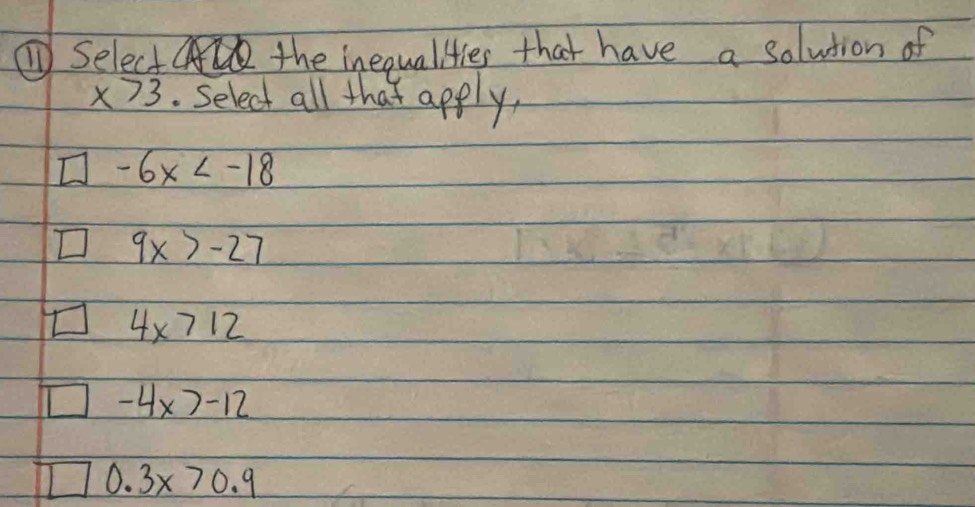 11 Select the inequalities that have a solution of
x > 3. Select all that apply,
-6x < -18
9x > -27
4x > 12
-4x > -12
0.3x > 0.9